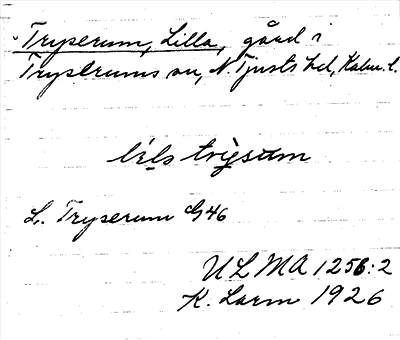 Tryserum, Lilla, gård i
Tryserums sn, N. Tjusts hd, Kalm. l.
lįls trìgsum
L. Tryserum G46
ULMA 1256:2
K. Larm 1926